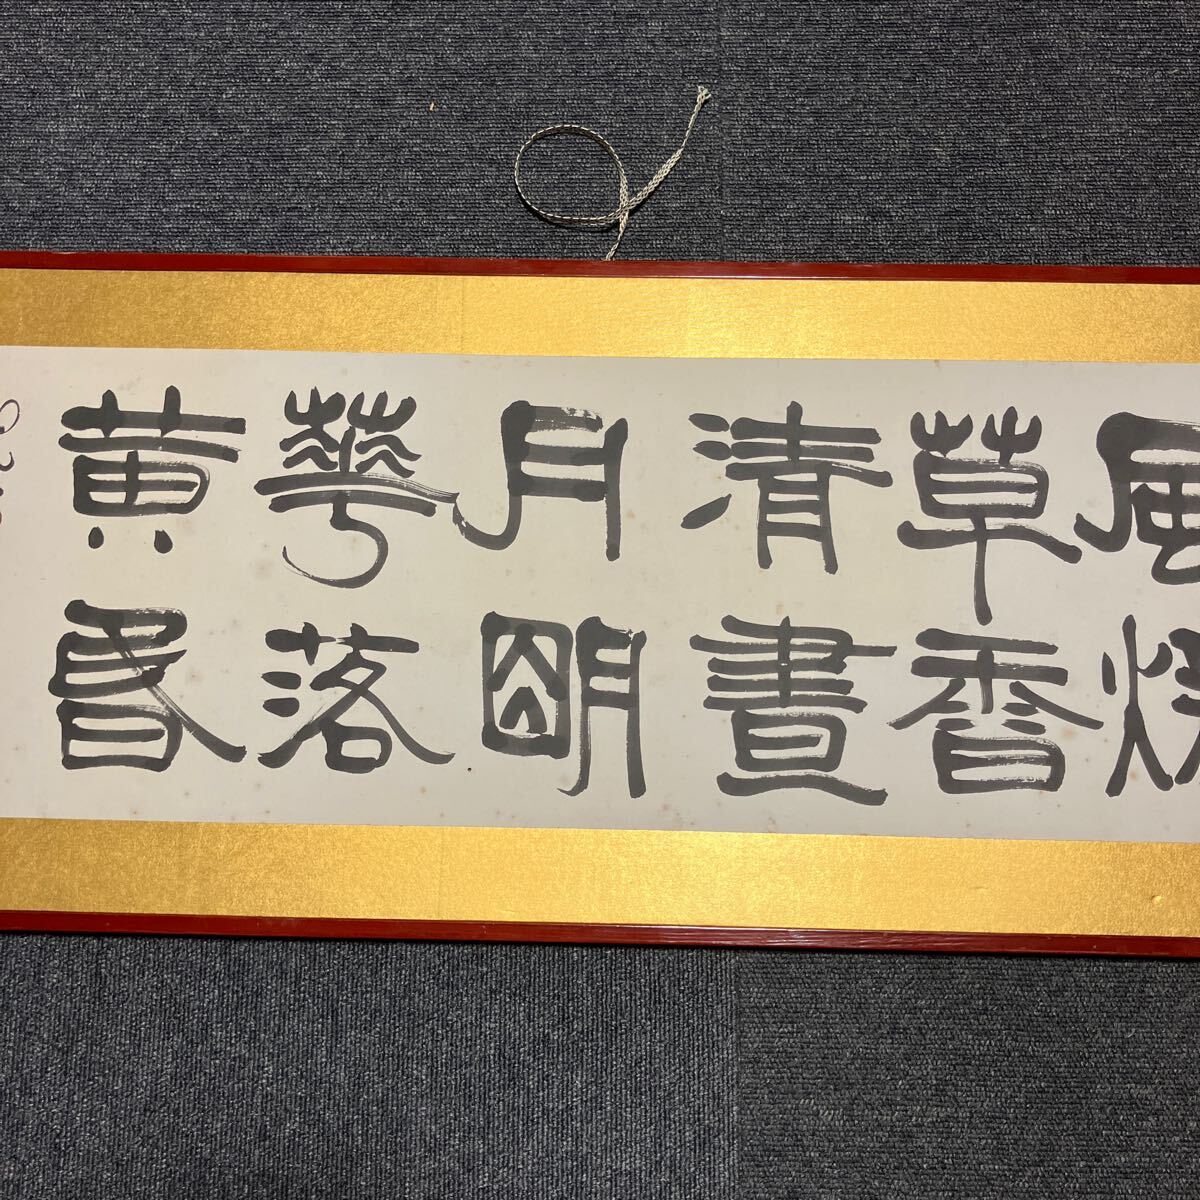 風
草香
清晝
月明
華落
黄昏